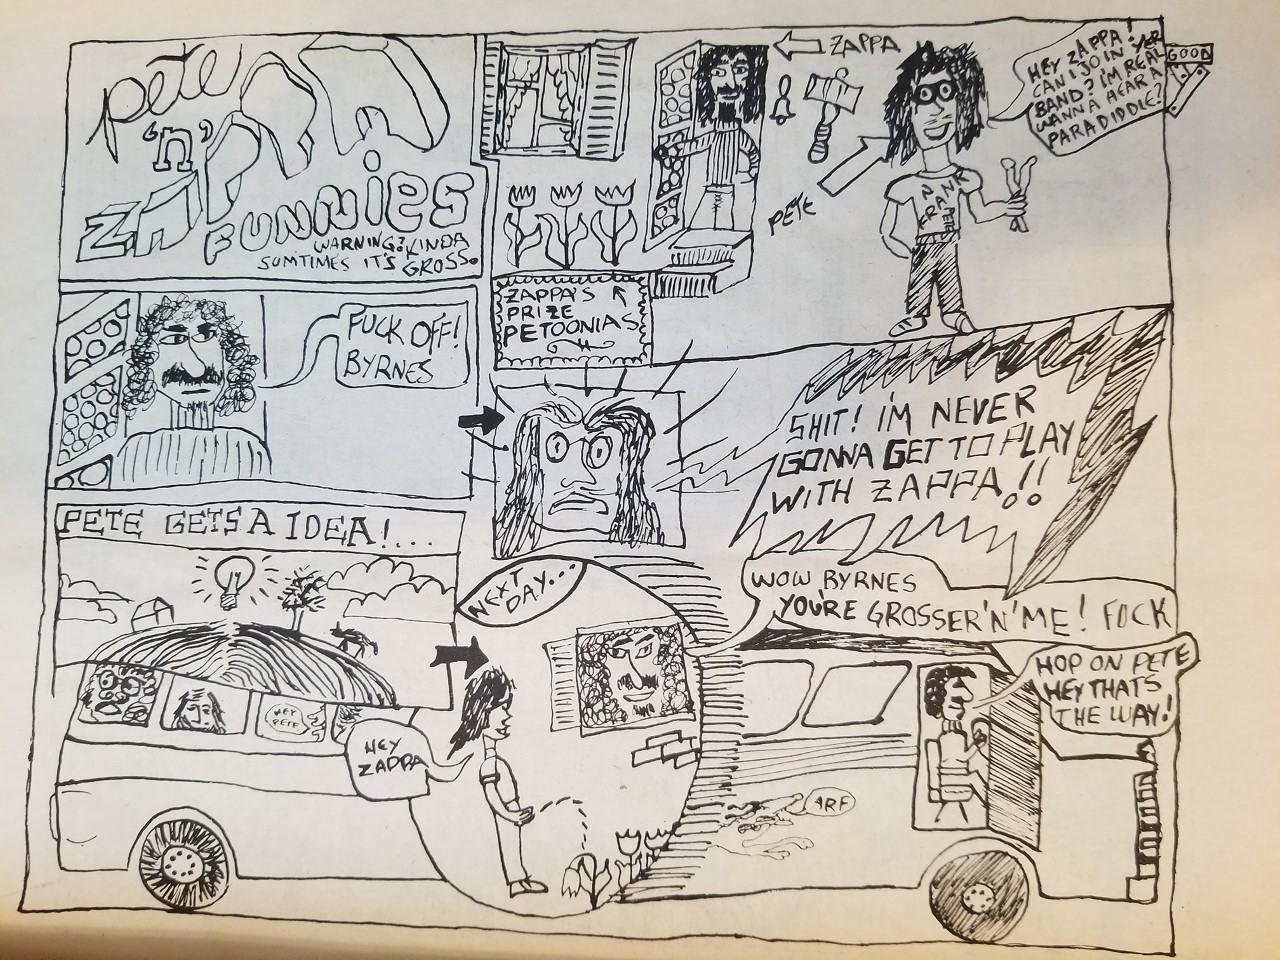 pete
'n'
ZAPPA
FUNNIES
WARNING: KINDA
SUMTIMES IT'S GROSS.
ZAPPA
HEY ZAPPA!
CAN I JOIN YER
BAND? I'M REAL
GOOD
WANNA HEAR A
PARADIDDLE?
PETE
FRANK
ZAPPA'S
PRIZE
PETOONIAS
FUCK OFF!
BYRNES
SHIT! I'M NEVER
GONNA GET TO PLAY
WITH ZAPPA!!
PETE GETS A IDEA!...
HEY
PETE
NEXT
DAY...
HEY
ZAPPA
WOW BYRNES
YOU'RE GROSSER 'N' ME! FUCK
HOP ON PETE
HEY THATS
THE WAY!
ARF